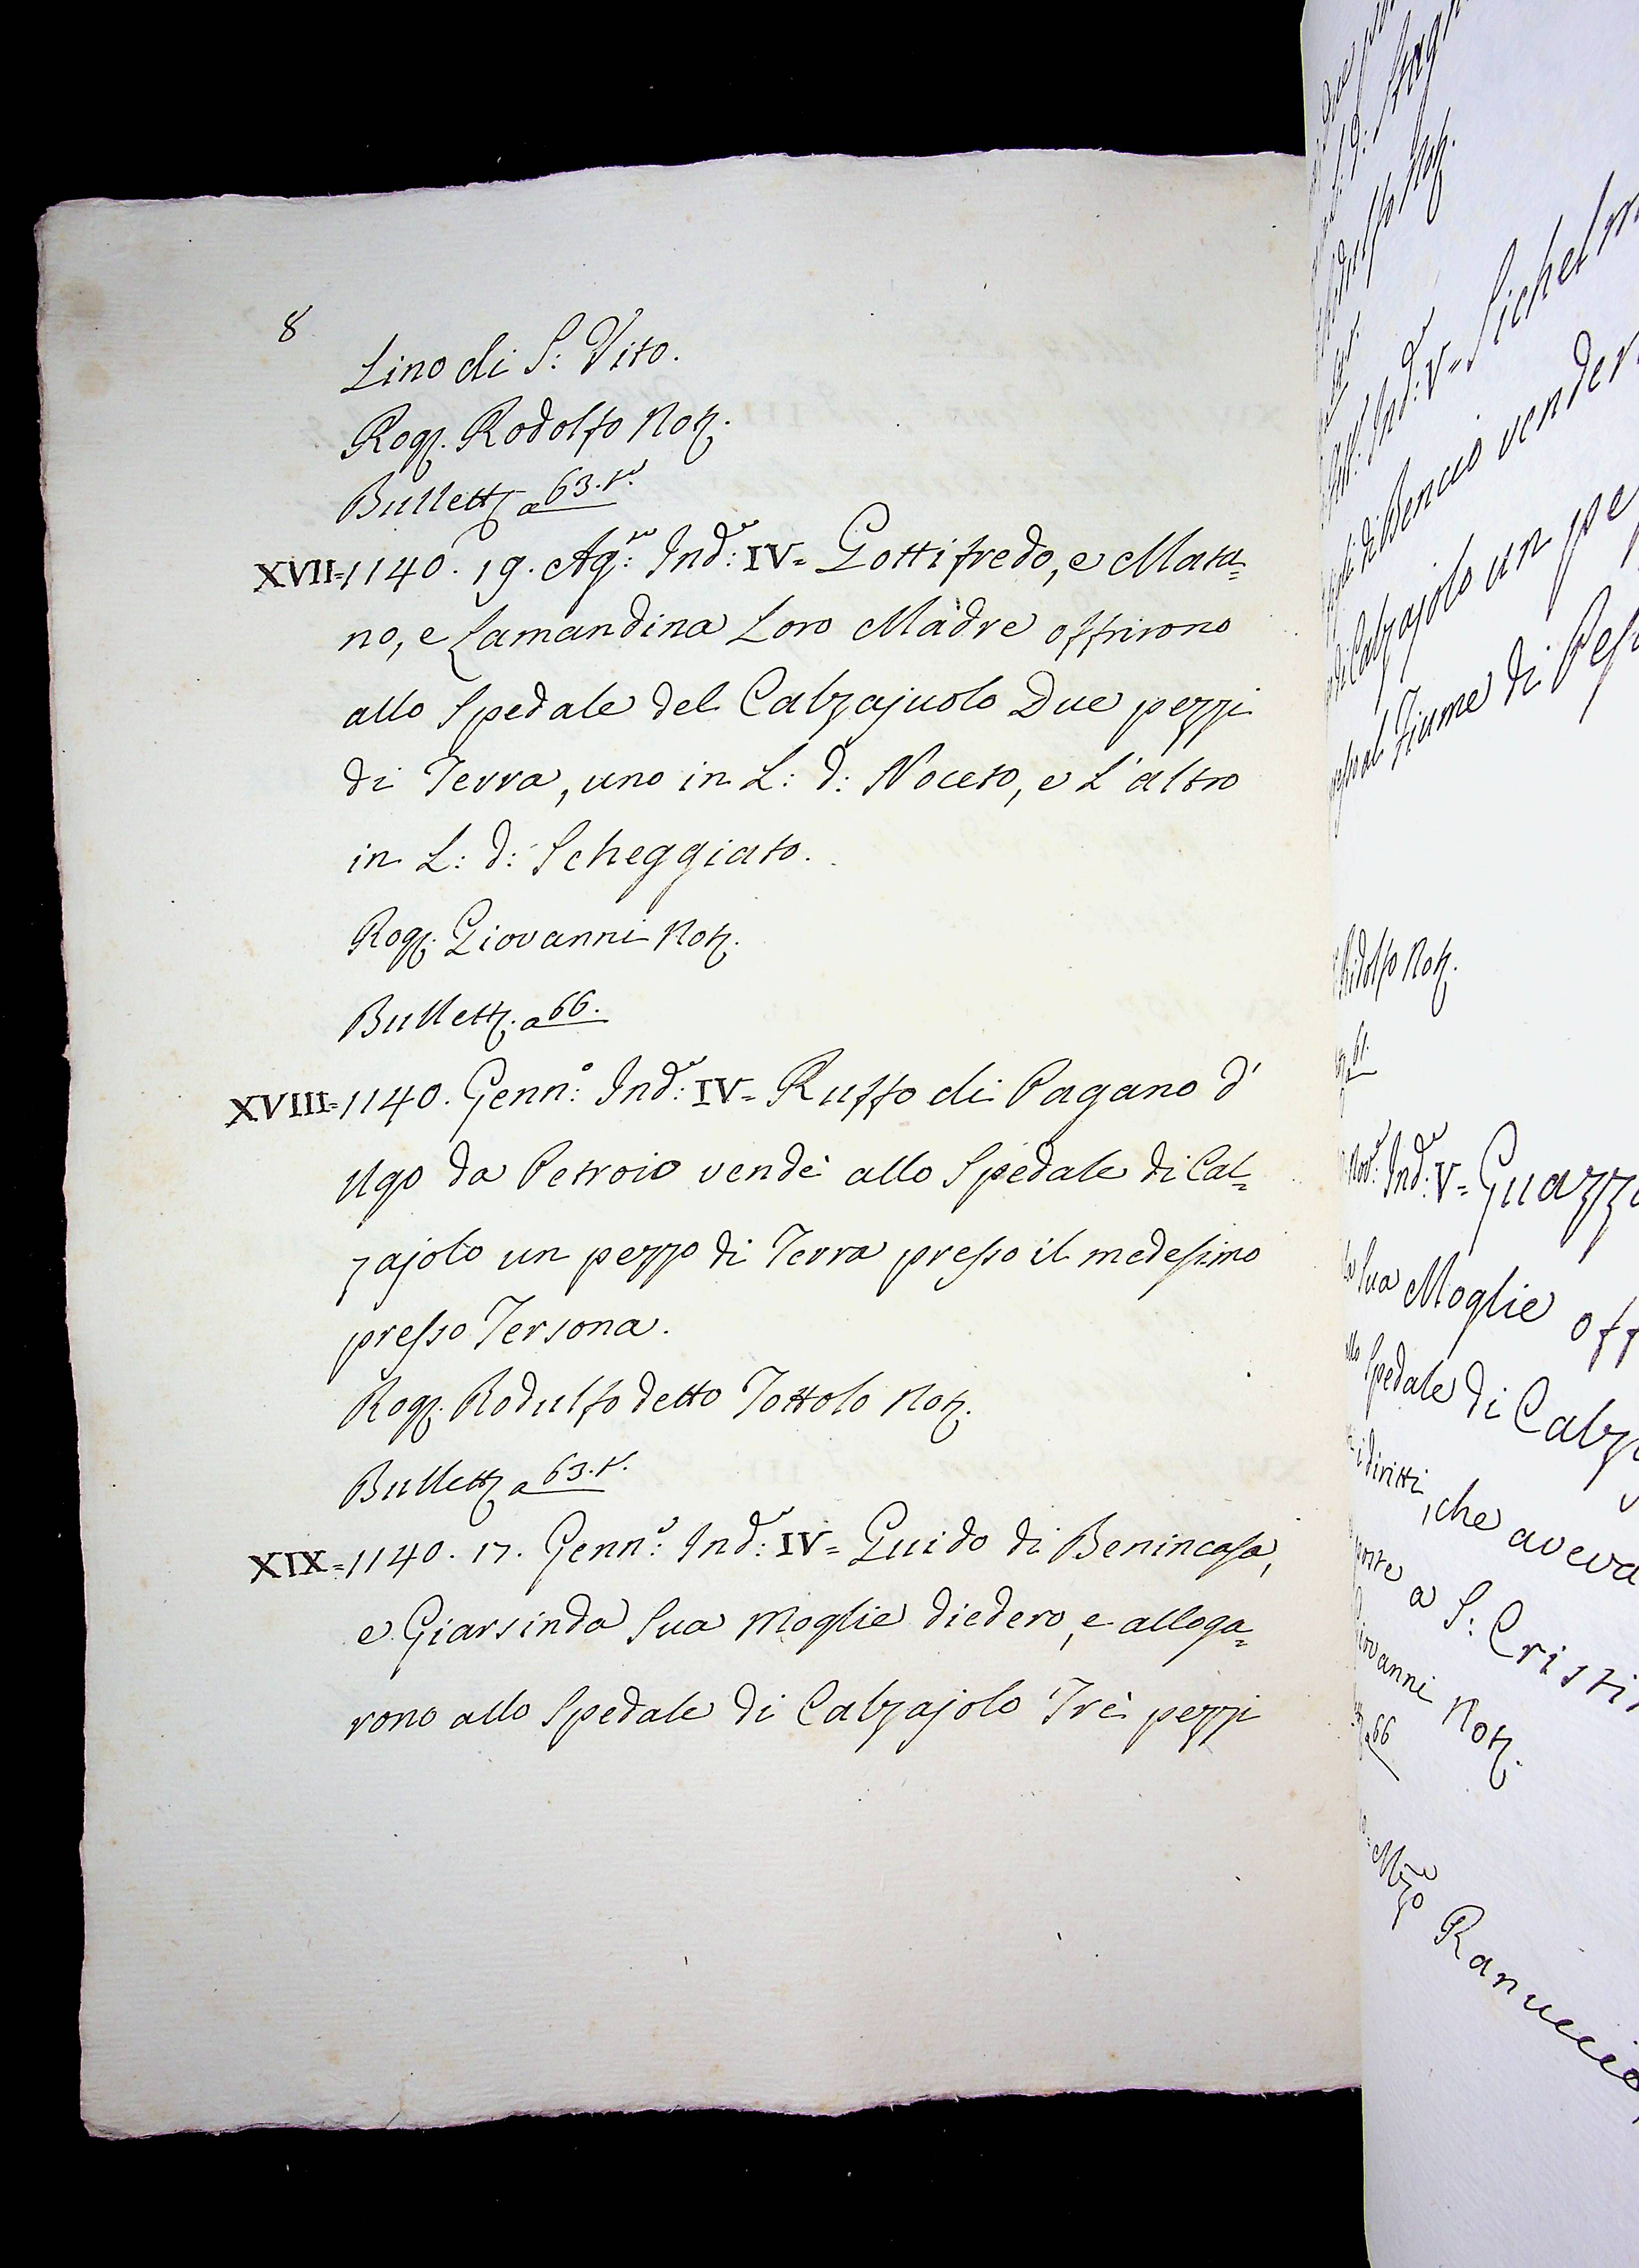 8
Lino di S: Vito.
Rog. Rodolfo Not.
Bullett. a 63. t.
XVII=1140. 19. Ag.to: Ind.e: IV= Gottifredo, e Mata=
no, e Lamandina Loro Madre offrirono
allo Spedale del Calzajuolo Due pezzi
di Terra, uno in L: d: Noceto, e L'altro
in L: d: Scheggiato.
Rog. Giovanni Not.
Bullett. a 66.
XVIII=1140. Genn.o: Ind.e: IV= Ruffo di Pagano d'
Ugo da Petroio vendè allo Spedale di Cal=
zajolo un pezzo di Terra presso il medesimo
presso Tersona.
Rog. Rodulfo detto Tottolo Not.
Bullett. a 63. t.
XIX=1140. 17. Genn.o: Ind.e: IV= Guido di Benincasa,
e Giarsinda Sua Moglie diedero, e alloga=
rono allo Spedale di Calzajolo Trè pezzi
Not.
Ind.e: V= Sichelm
di Bencio vender
di Calzajolo un pe
Fiume di Pes
Ridolfo Not.
61.
Nov.e: Ind.e: V= Guazzo
Sua Moglie off
Spedale di Calz
i diritti, che aveva
poste a S: Cristi
Giovanni Not.
a 66
Ranuccio